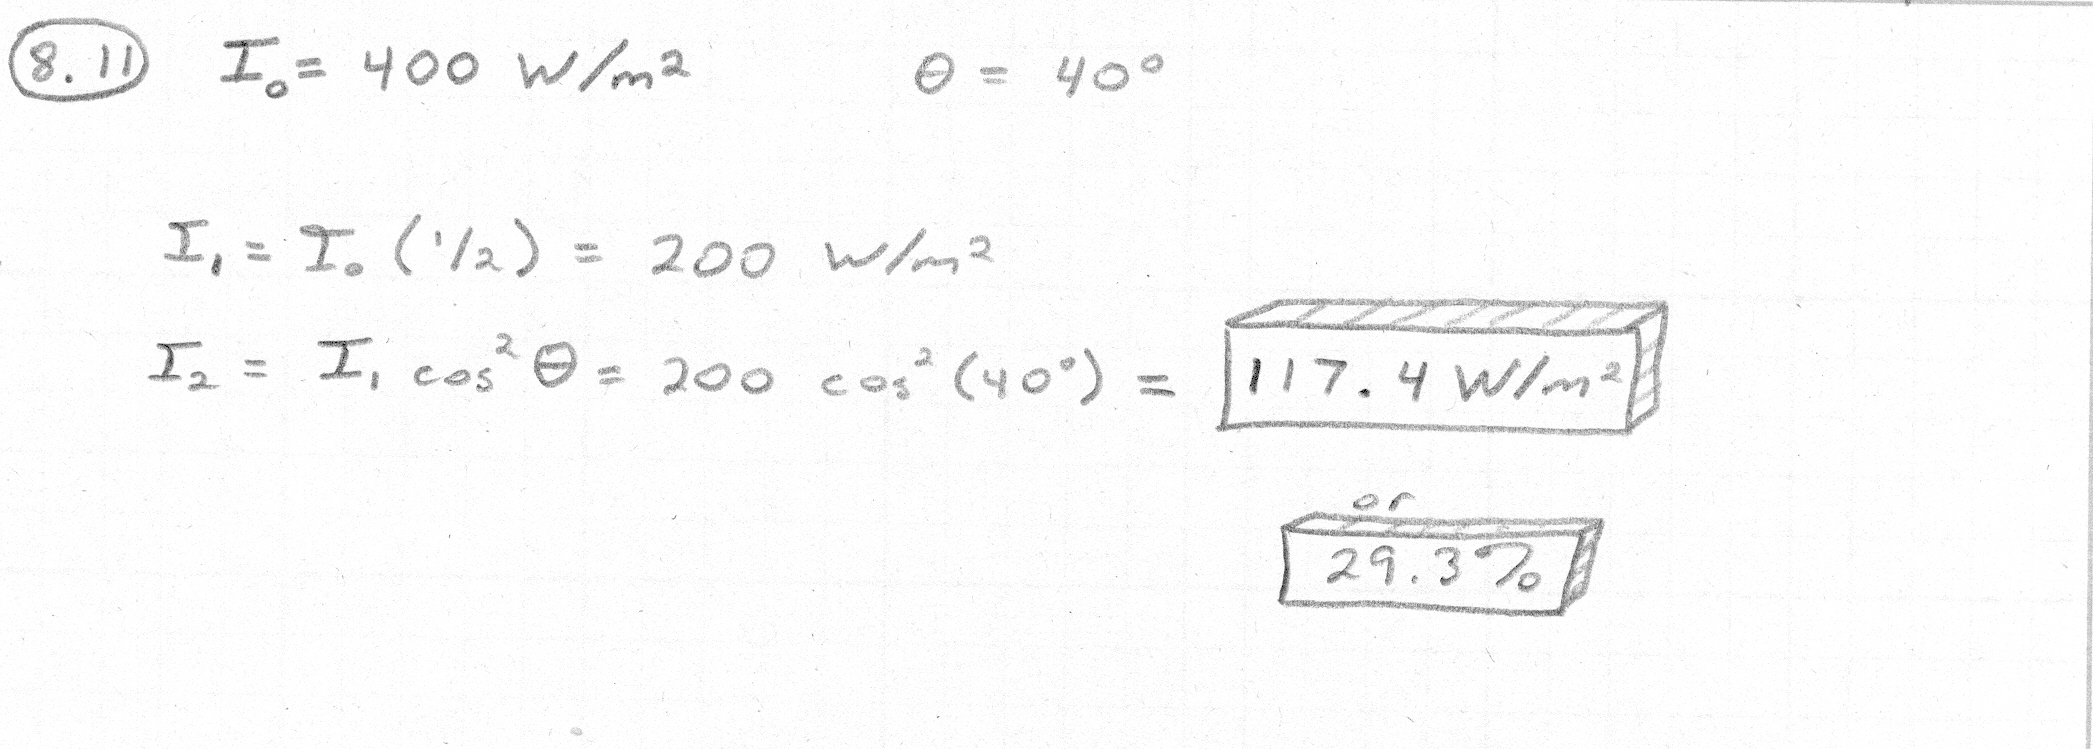 8.11 I₀ = 400 W/m² θ = 40°
I₁ = I₀ (1/2) = 200 W/m²
I₂ = I₁ cos²θ = 200 cos²(40°) = 117.4 W/m²
or
29.3%